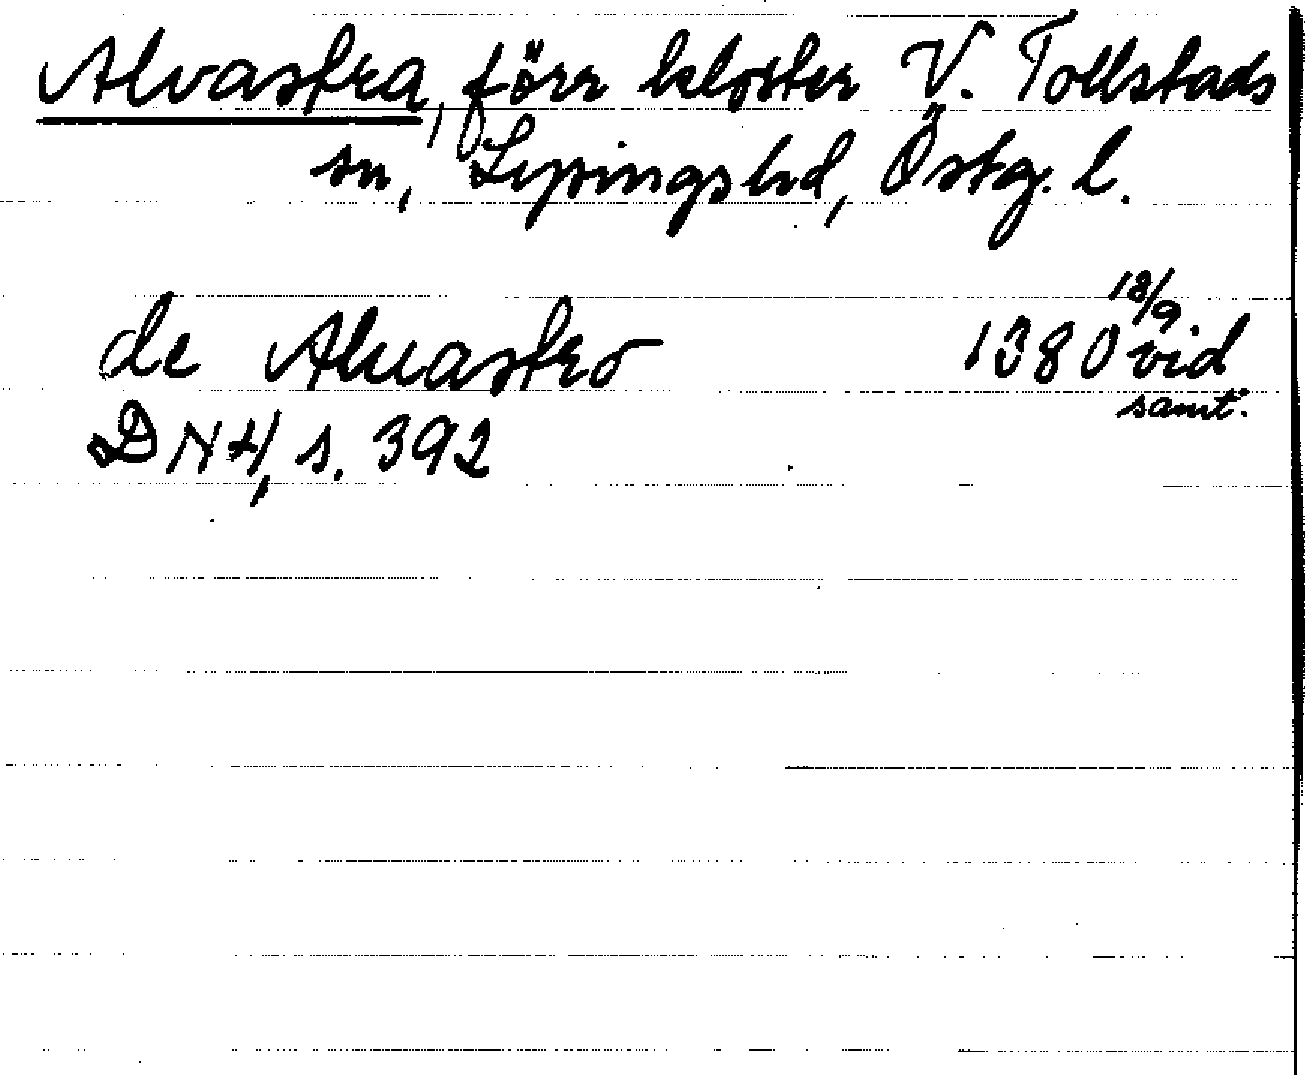 Alvastra, förr kloster V. Tollstads
sn, Lysingshd, Östg. l.
de Aluastro 1380 18/9 vid
samt.
DN 4, s. 392